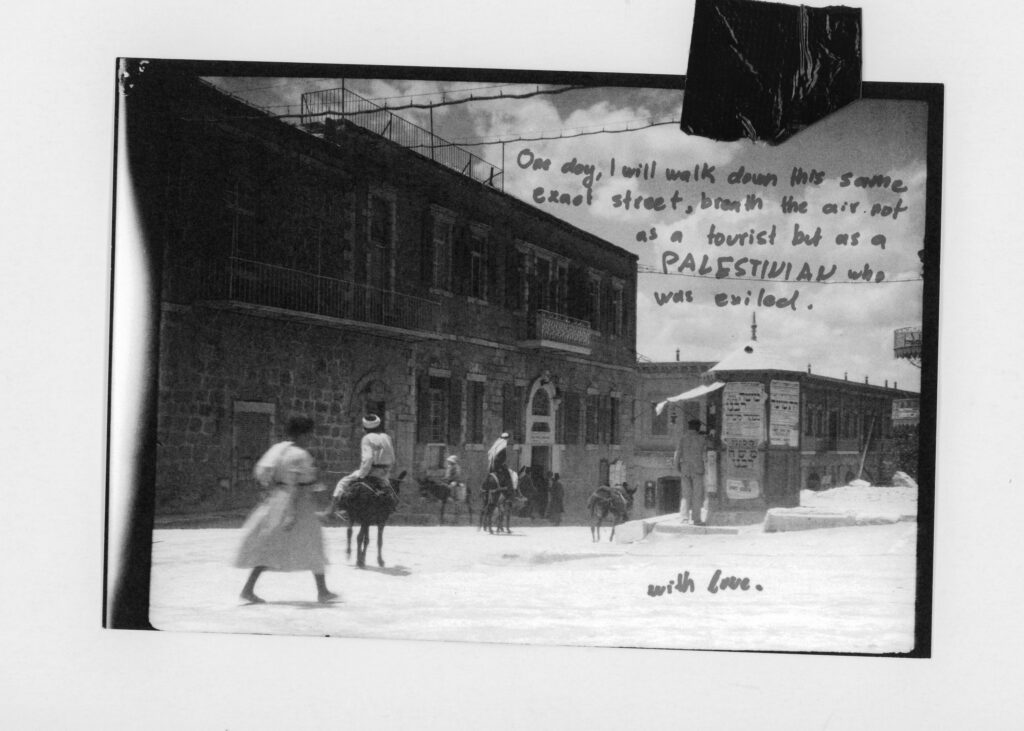 One day, I will walk down this same
exact street, breath the air not
as a tourist but as a
PALESTINIAN who
was exiled.
with love.